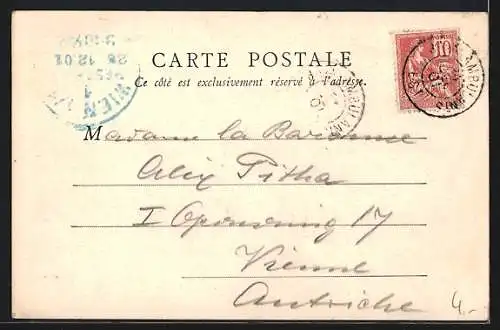 CARTE POSTALE
Ce côté est exclusivement réservé à l'adresse.
Madame la Baronne
Alix Pitha
I Opernring 17
Vienne
Autriche
4.-
26.12.01
WIEN
10